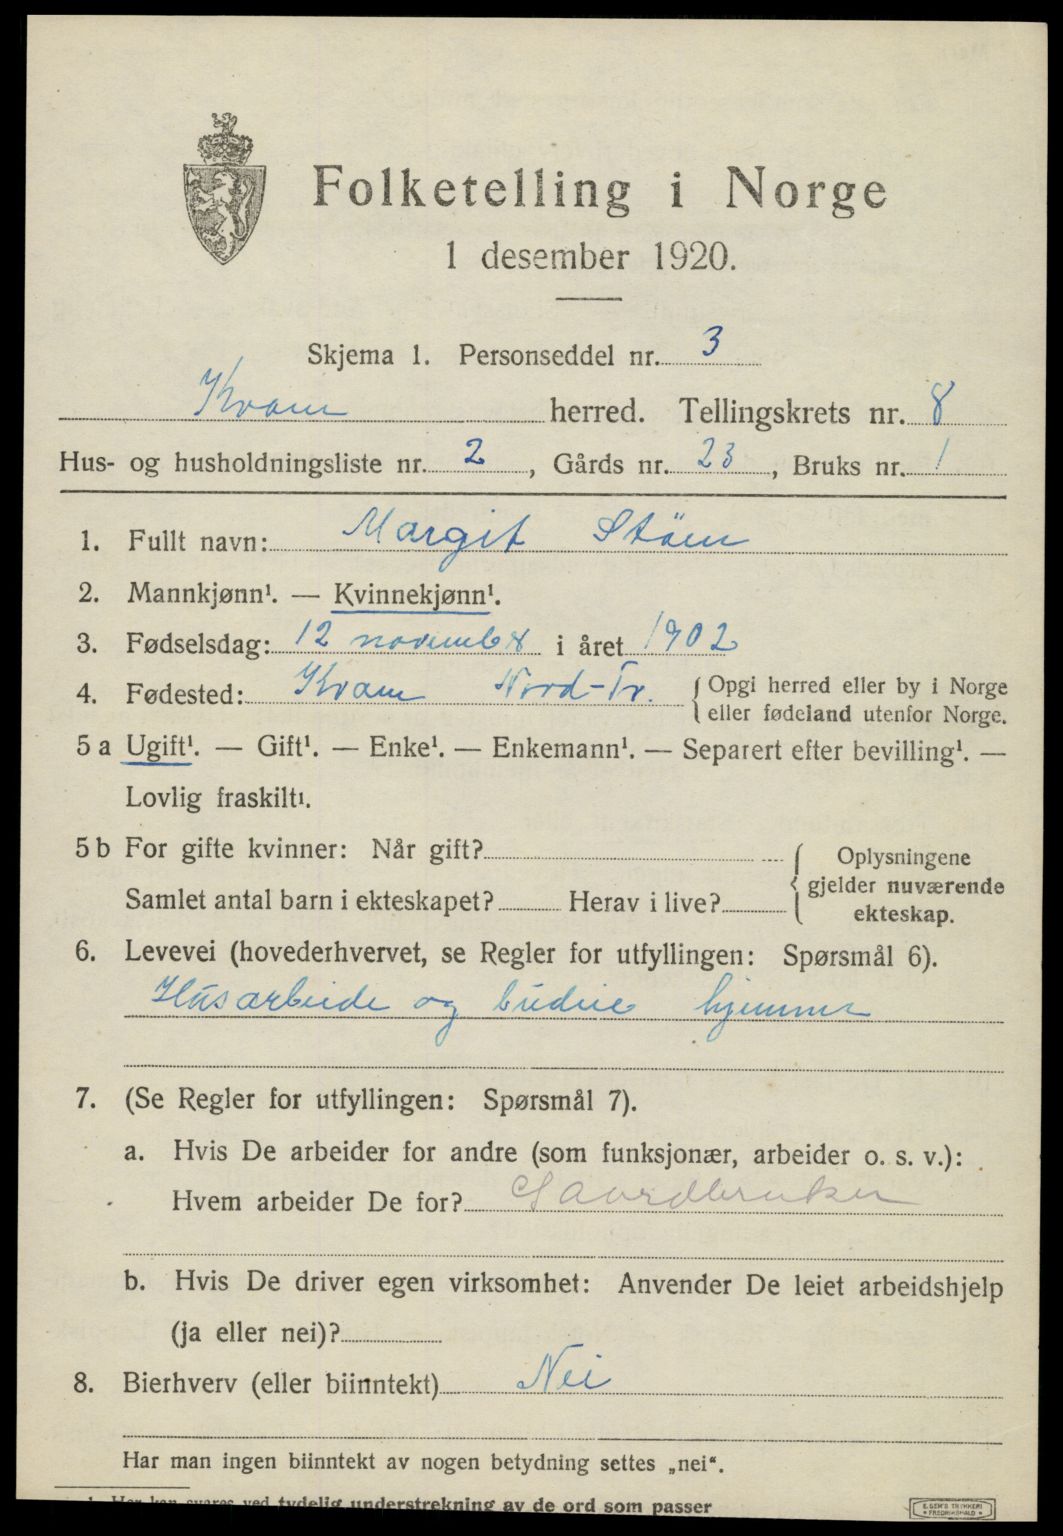 Folketelling i Norge
1 desember 1920.
Skjema 1. Personseddel nr. 3
Kvam herred. Tellingskrets nr. 8
Hus- og husholdningsliste nr. 2, Gårds nr. 23, Bruks nr. 1
1. Fullt navn: Margit Stöm
2. Mannkjønn¹. — Kvinnekjønn¹.
3. Fødselsdag: 12 november i året 1902
4. Fødested: Kvam Nord-Tr. { Opgi herred eller by i Norge
eller fødeland utenfor Norge.
5 a Ugift¹. — Gift¹. — Enke¹. — Enkemann¹. — Separert efter bevilling¹. —
Lovlig fraskilt¹.
5 b For gifte kvinner: Når gift?
Samlet antal barn i ekteskapet? Herav i live?
{ Oplysningene
gjelder nuværende
ekteskap.
6. Levevei (hovederhvervet, se Regler for utfyllingen: Spørsmål 6).
Husarbeide og budeie hjemme
7. (Se Regler for utfyllingen: Spørsmål 7).
a. Hvis De arbeider for andre (som funksjonær, arbeider o. s. v.):
Hvem arbeider De for? Gaardbruker
b. Hvis De driver egen virksomhet: Anvender De leiet arbeidshjelp
(ja eller nei)?
8. Bierhverv (eller biinntekt) Nei
Har man ingen biinntekt av nogen betydning settes „nei“.
ved tydelig understrekning av de ord som passer
E. SEM'S TRYKKERI
FREDRIKSHALD